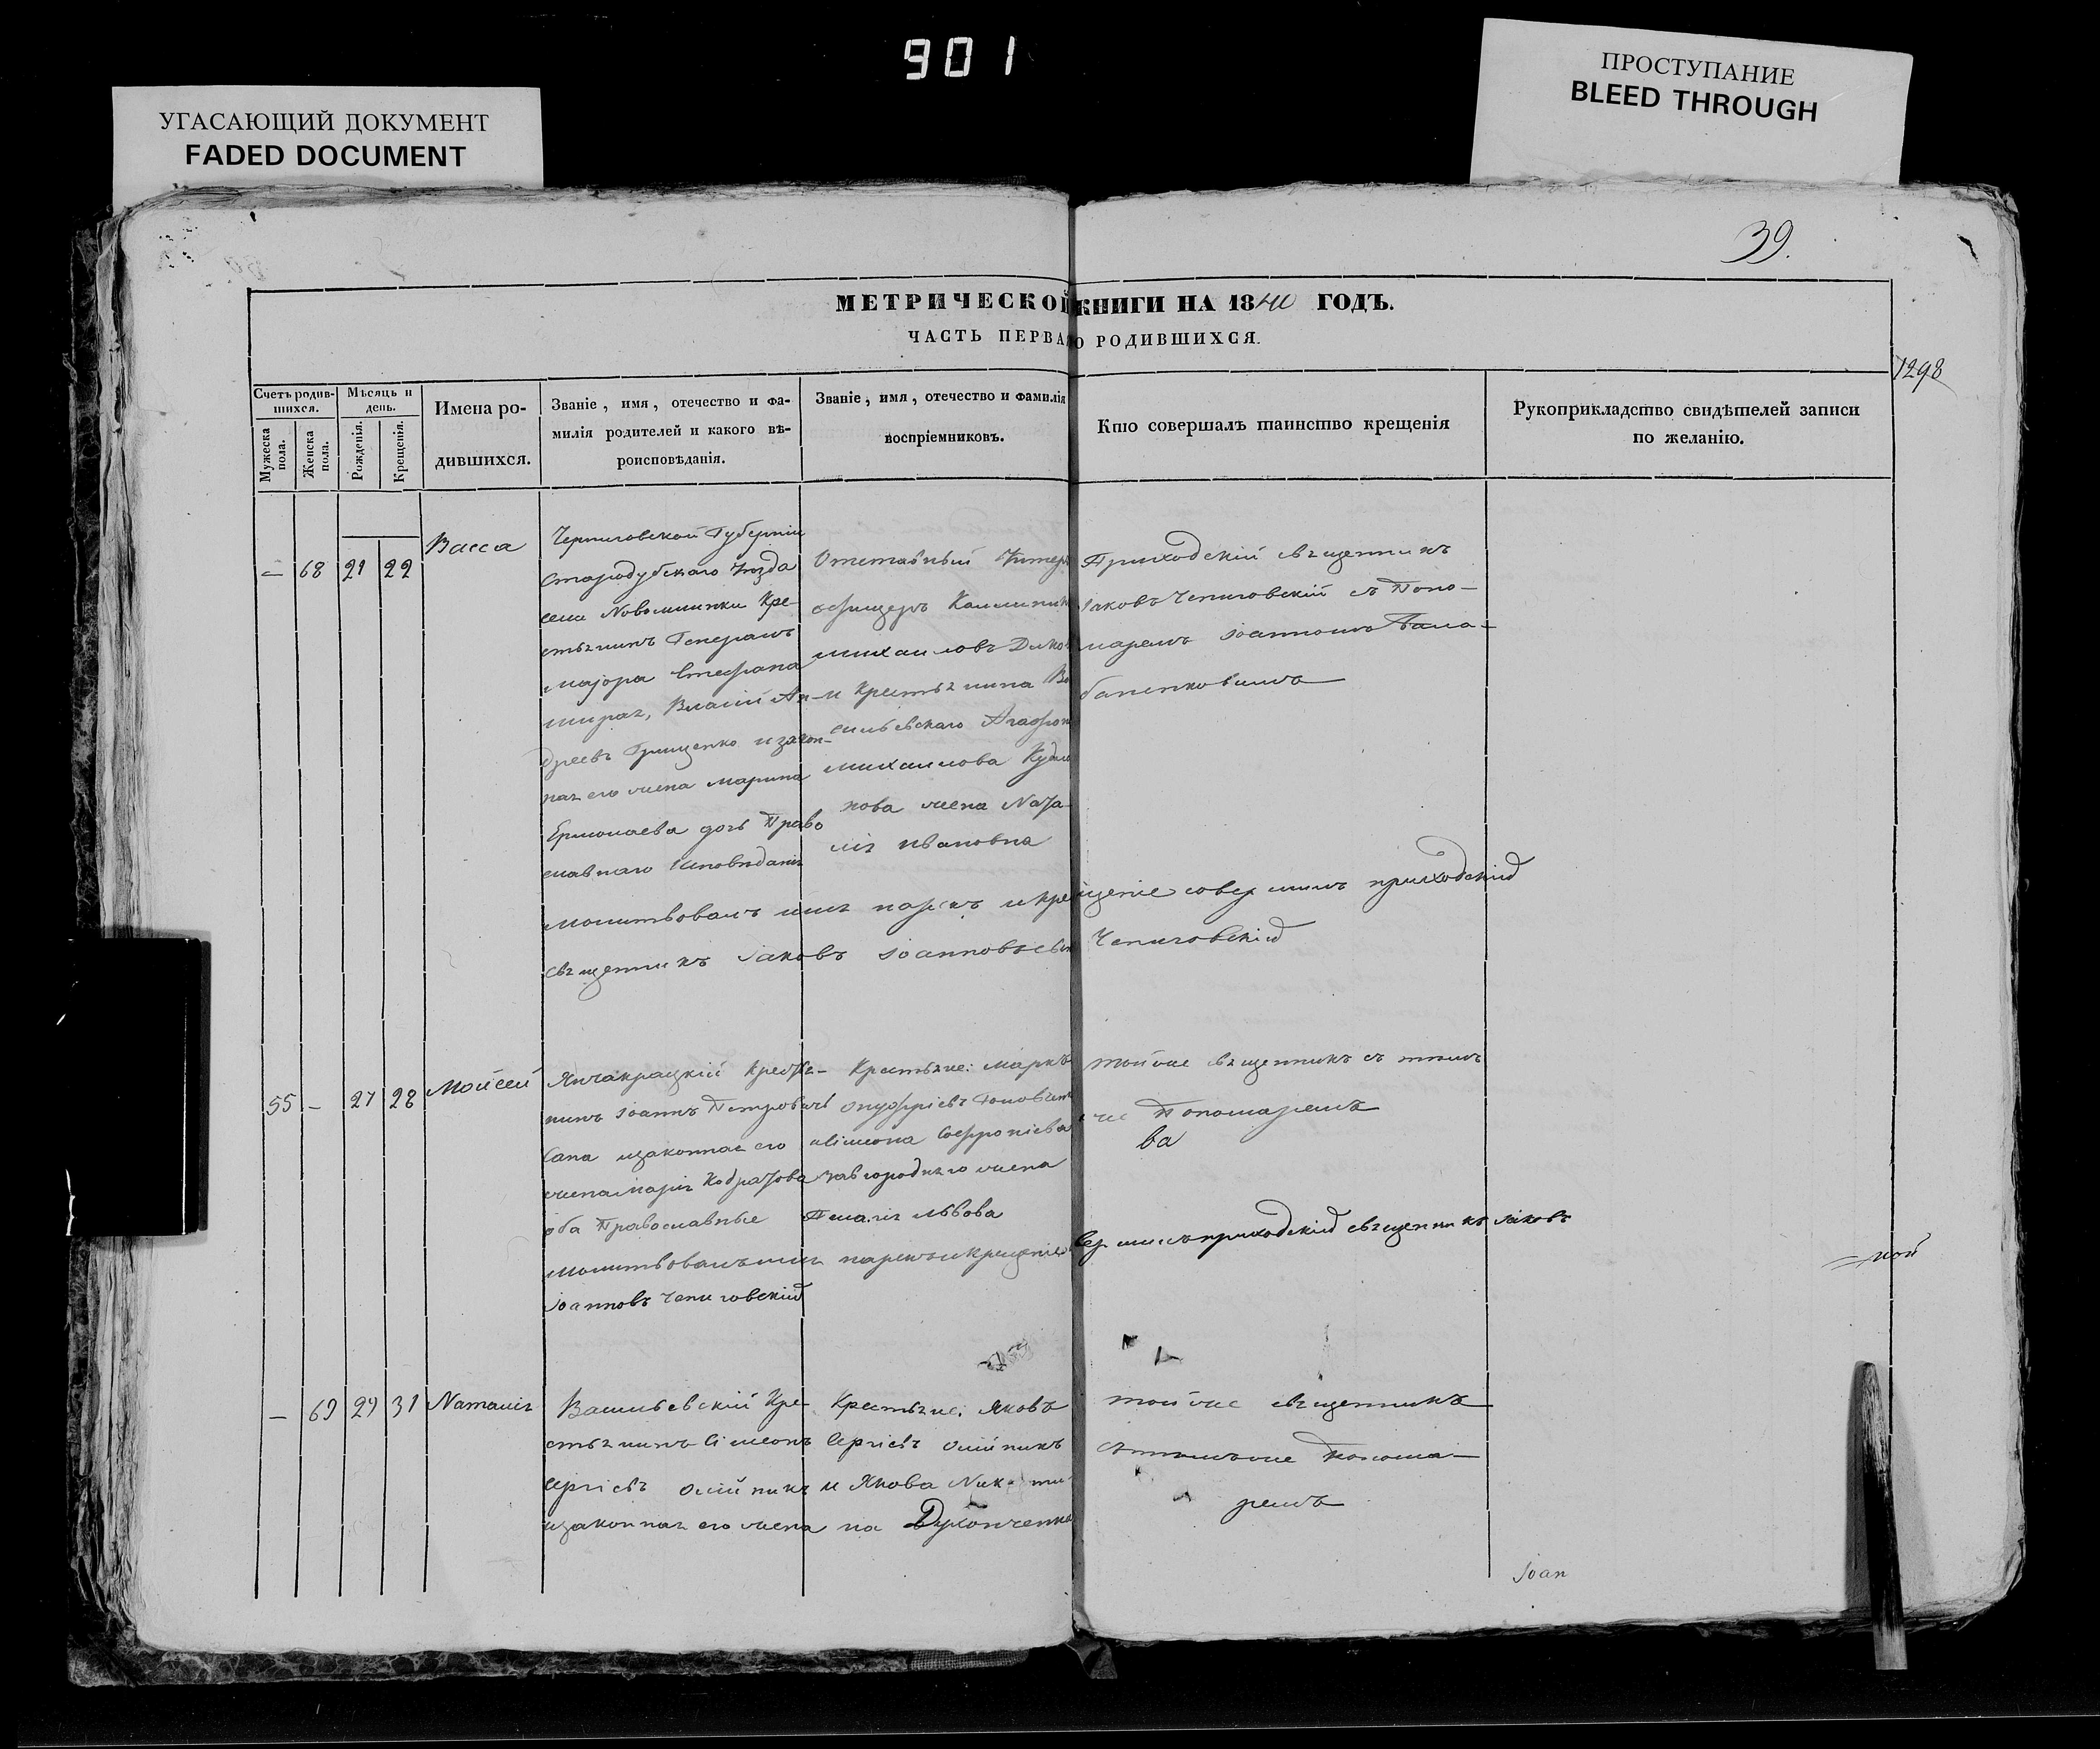 901
УГАСАЮЩИЙ ДОКУМЕНТ
FADED DOCUMENT
ПРОСТУПАНИЕ
BLEED THROUGH
39.
МЕТРИЧЕСКОЙ КНИГИ НА 1840 ГОДЪ.
ЧАСТЬ ПЕРВАЯ О РОДИВШИХСЯ.
1298
Счетъ родив-
шихся.
Мужеска
пола.
Женска
пола.
Мѣсяць и
день.
Рожденія.
Крещенія.
Имена ро-
дившихся.
Званіе, имя, отечество и фа-
милія родителей и какого вѣ-
роисповѣданія.
Званіе, имя, отечество и фамилія
воспріемниковъ.
Кто совершалъ таинство крещенія
Рукоприкладство свидѣтелей записи
по желанію.
— 68 21 22
Васса
Черниговской Губерніи
Стародубскаго Уѣзда
села Новомлинки Кре-
стьянинъ Генералъ
Маіора Стефана
Ширая, Власій Ан-
дреевъ Грищенко и закон-
ная его жена Марина
Ермолаева дочь Право
славнаго Исповѣданія
Отставный Унтеръ
офицеръ Каллиник
Михаиловъ
и Крестьянина Ва
сильевскаго Агафон
Михаилова
нова жена Ната-
лія Ивановна
Приходскій священникъ
Іаковъ Чепиговскій съ Поно-
маремъ Іоанномъ Бала-
баненковымъ
молитвовалъ имя нарекъ и крещеніе совершилъ приходскій
священникъ Іаковъ Іоанновъ сынъ Чепиговскій
55 — 27 28
Мойсей
Янчакрацкій Крестья-
нинъ Іоаннъ Петровъ
Сапа и законная его
жена Марія Кодратова
оба Православные
Крестьяне: Маркъ
Онуфріевъ
и Симеона Софроніева
Завгороднего жена
Пелагія Львова
тойже священникъ съ тѣмъ
же Пономаремъ
ва
молитвовалъ имя нарекъ и крещеніе
вершилъ приходскій священникъ Іаковъ
Іоанновъ Чепиговскій
— 69 29 31
Наталія
Васильевскій Кре-
стьянинъ Симеонъ
Сергіевъ Олійникъ
и законная его жена
Крестьяне: Яковъ
Сергіевъ Олійникъ
и Якова
на Духонченка
тойже священникъ
съ тѣмъ же Понома-
ремъ
Іоан